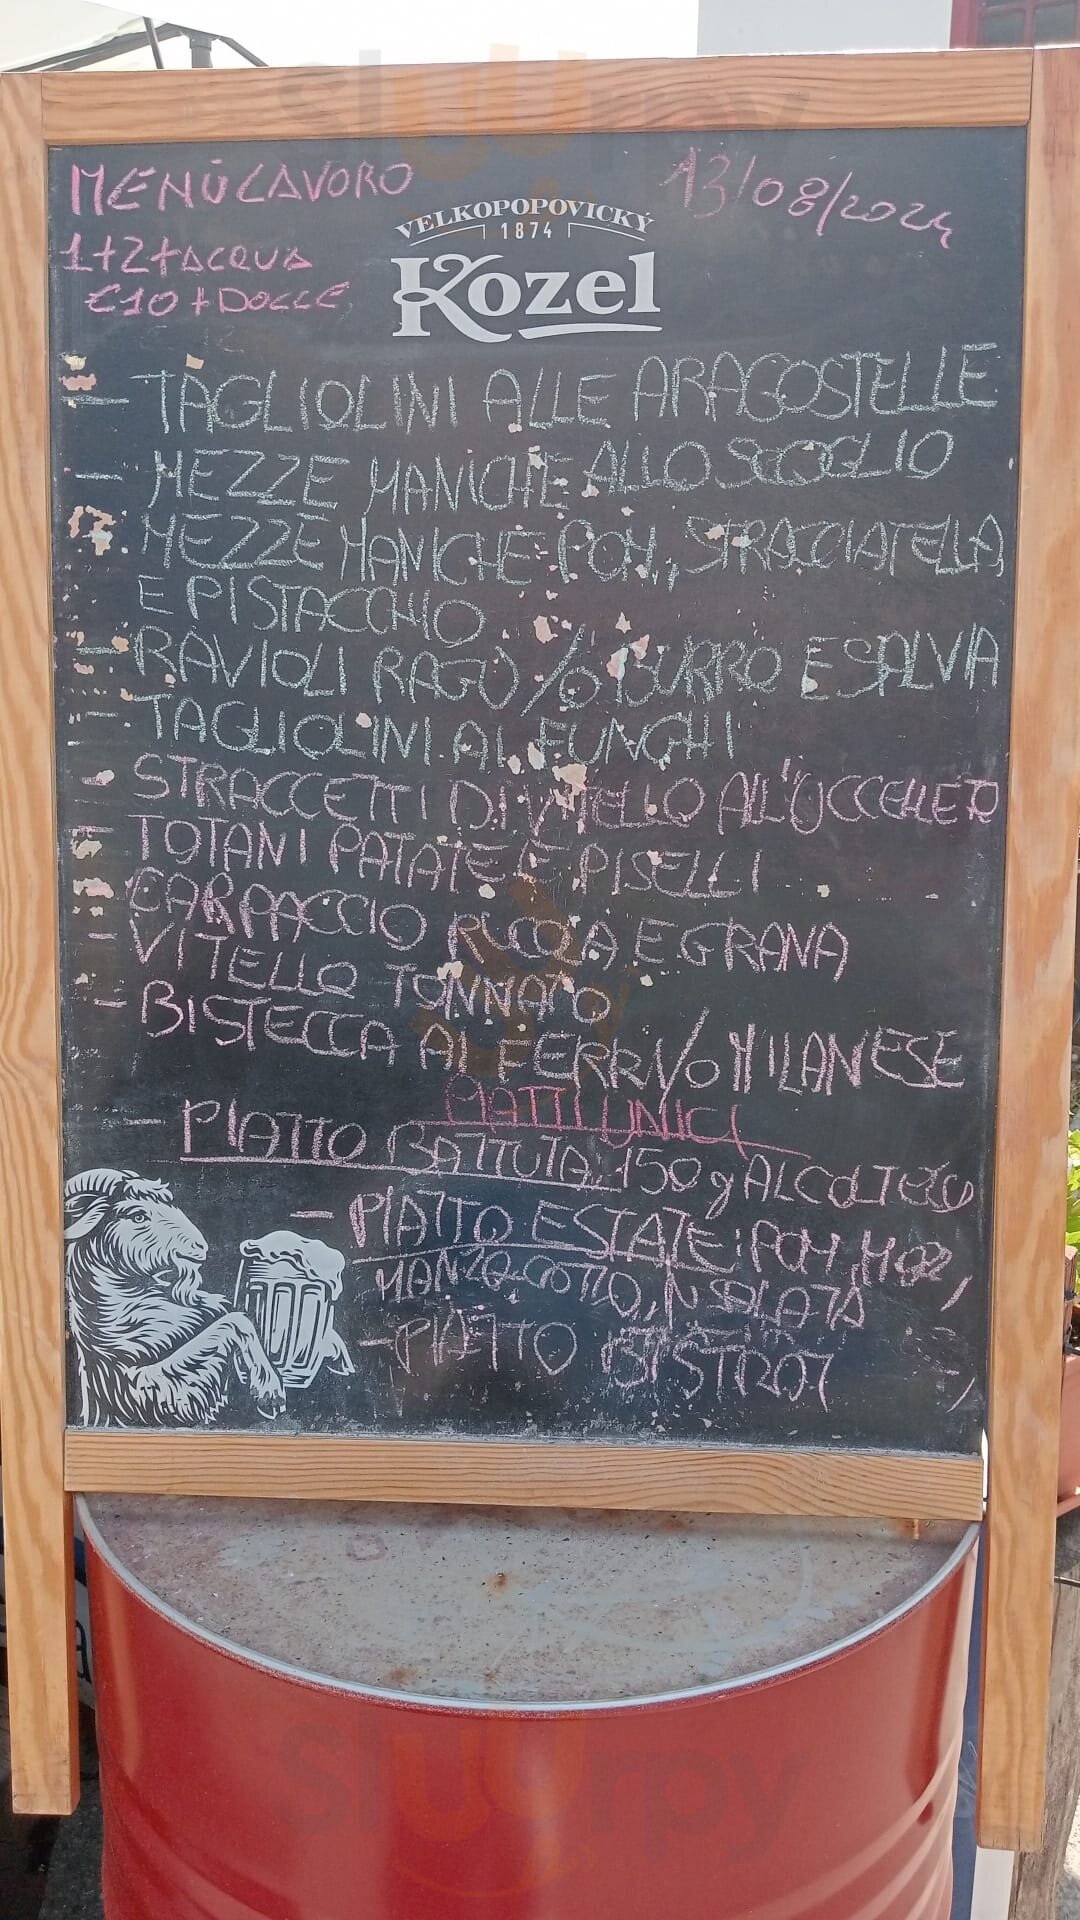 MENÙ LAVORO
13/08/2024
1+2+ACQUA
€10+DOLCE
VELKOPOPOVICKÝ
1874
Kozel
- TAGLIOLINI ALLE ARAGOSTELLE
- MEZZE MANICHE ALLO SCOGLIO
MEZZE MANICHE POM, STRACCIATELLA
E PISTACCHIO
- RAVIOLI RAGÙ/O BURRO E SALVIA
- TAGLIOLINI AI FUNGHI
- STRACCETTI DI VITELLO ALL'UCCELLETO
- TOTANI PATATE E PISELLI
- CARPACCIO RUCOLA E GRANA
- VITELLO TONNATO
- BISTECCA AI FERRI/O MILANESE
PIATTI UNICI
- PIATTO BATTUTA 150g AL COLTELLO
- PIATTO ESTATE: POM, MOZ,
MANZO COTTO, INSALATA
- PIATTO BISTROT
sluurpy
sluurpy